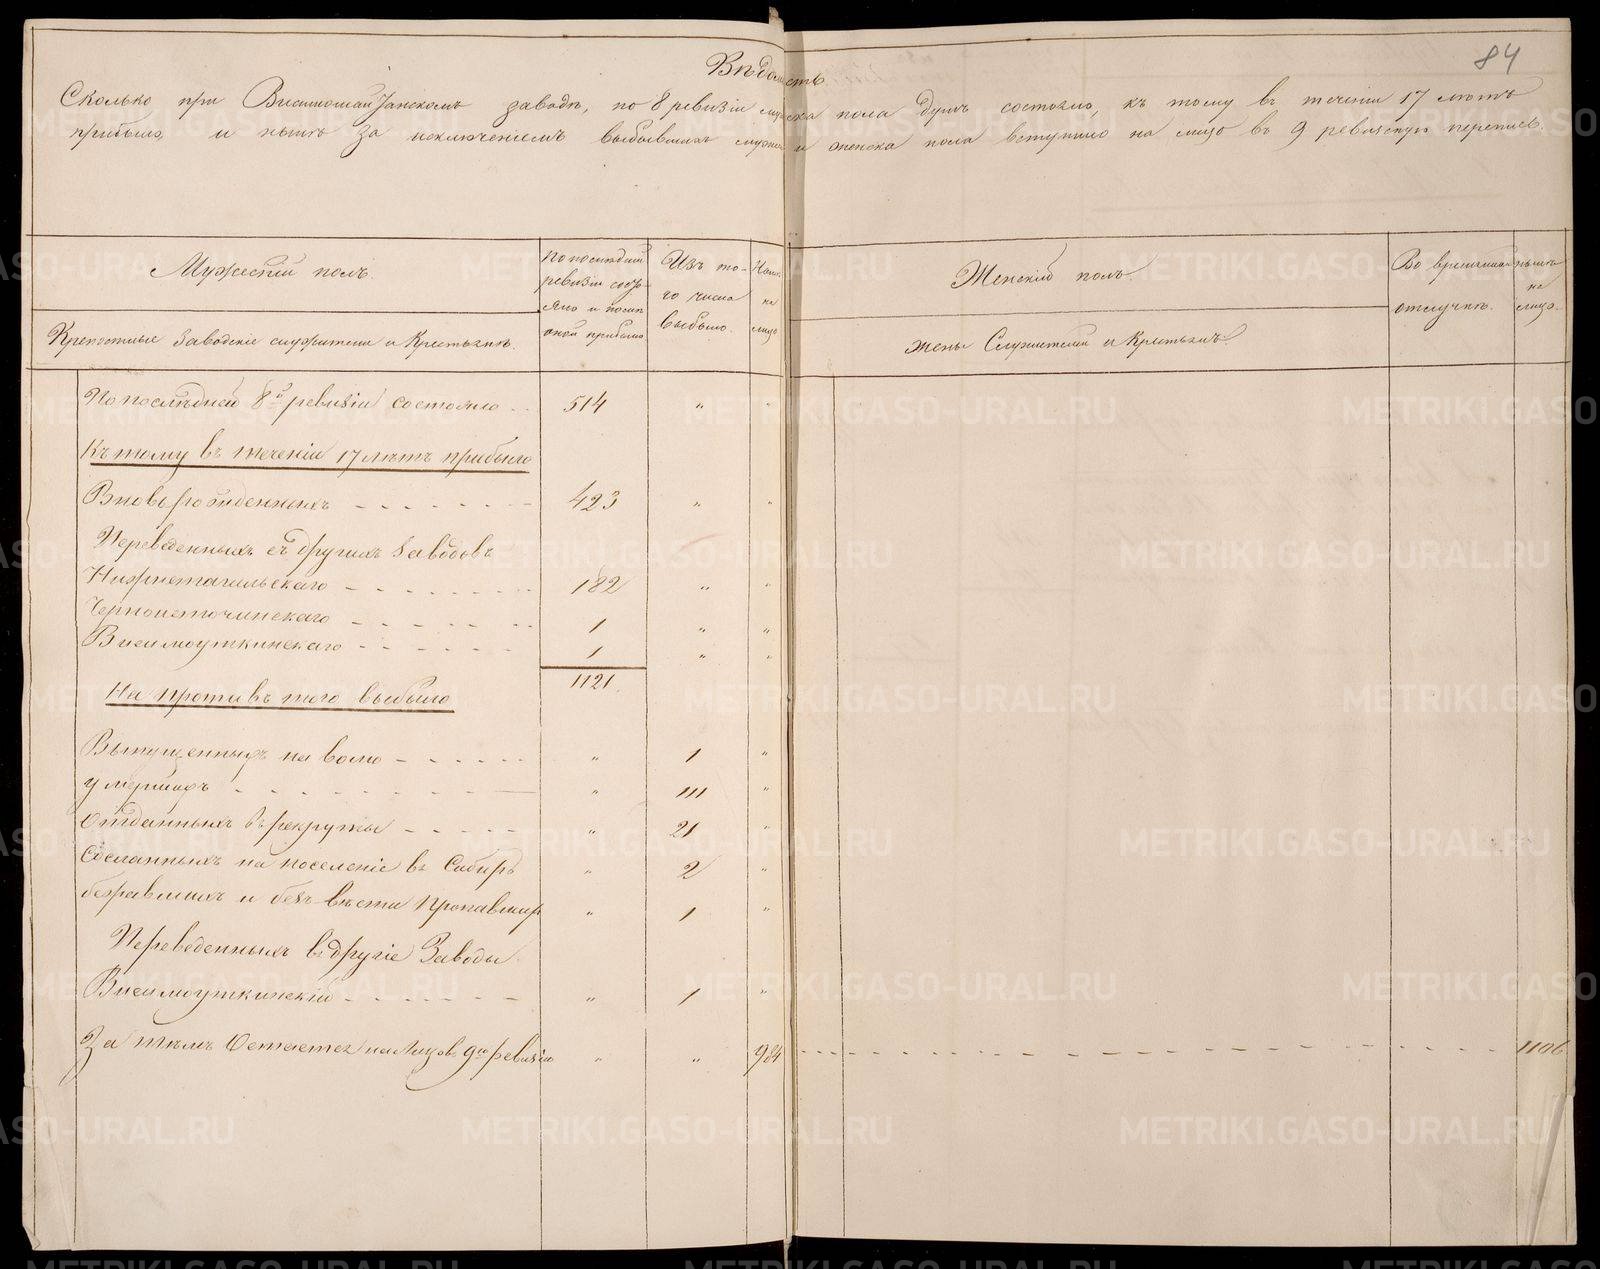 84
Вѣдомость
Сколько при Висимошайтанскомъ заводѣ, по 8 ревизіи мужска пола душъ состояло, къ тому въ теченіи 17 лѣтъ
прибыло, и нынѣ за исключеніемъ выбывшихъ мужска и женска пола вступило на лицо въ 9 ревизскую перепись.
Мужескій полъ.
Крепостные Заводскіе служители и Крестьяне.
По последней
ревизіи состо-
яло и после
оной прибыло
Изъ то-
го числа
выбыло.
Ныне
на
лицо
Женскій полъ.
жены Служителей и Крестьянъ.
Во временной
отлучкѣ.
нынѣ
на
лицо.
По последней 8й ревизіи состояло 514 " "
Къ тому въ теченіи 17 лѣтъ прибыло
Вновь рожденныхъ - - - - - - 423 " "
Переведенныхъ съ другихъ Заводовъ
Нижнетагильскаго - - - - - - 182 " "
Черноисточинскаго - - - - - - 1 " "
Висимоуткинскаго - - - - - 1 " "
1121.
На противъ того выбыло
Выпущенныхъ на волю - - - - - " 1 "
умершихъ - - - - - - - - " 111 "
Отданныхъ въ рекруты - - - - " 21 "
Сосланныхъ на поселеніе въ Сибирь " 2 "
бежавшихъ и безъ вѣсти пропавшихъ " 1 "
Переведенныхъ въ другіе Заводы.
Висимоуткинскій - - - - - - " 1 "
За тѣмъ Остается на Лицо въ 9ю ревизію " " 984 - - - - - - - - - - 1106
METRIKI.GASO-URAL.RU